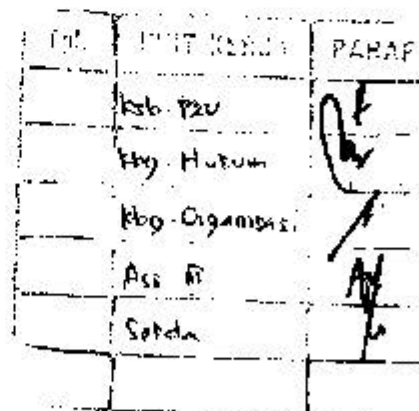 UNIT KERJA PARAF
Ksb. P2U
Kbg. Hukum
Kbg. Organisasi
Ass III
Setda